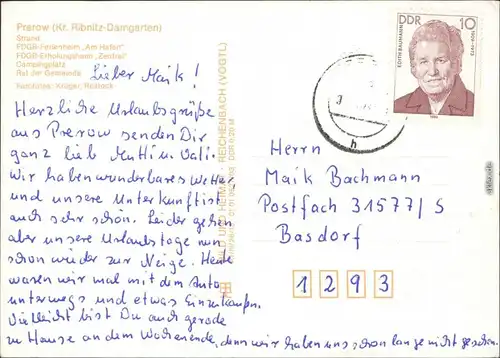 Prerow (Kr. Ribnitz-Damgarten)
Strand
FDGB-Ferienheim „Am Hafen"
FDGB-Erholungsheim „Zentral"
Campingplatz
Rat der Gemeinde
Krüger, Rostock
Lieber Maik!
Herzliche Urlaubsgrüße
aus Prerow senden Dir
ganz lieb Mutti u. Vati.
Wir haben wunderbares Wetter
und unsere Unterkunft ist
auch sehr schön. Leider gehen
aber unsere Urlaubstage nun
schon wieder zur Neige. Heute
waren wir mal mit dem Auto
unterwegs und etwas Einzukaufen.
Vielleicht bist Du auch gerade
zu Hause an dem Wochenende, denn wir haben uns schon lange nicht gesehen.
BILD UND HEIMAT REICHENBACH (VOGTL)
DDR 10
EDITH BAUMANN
1909-1973
h
Herrn
Maik Bachmann
Postfach 31577/S
Basdorf
1293